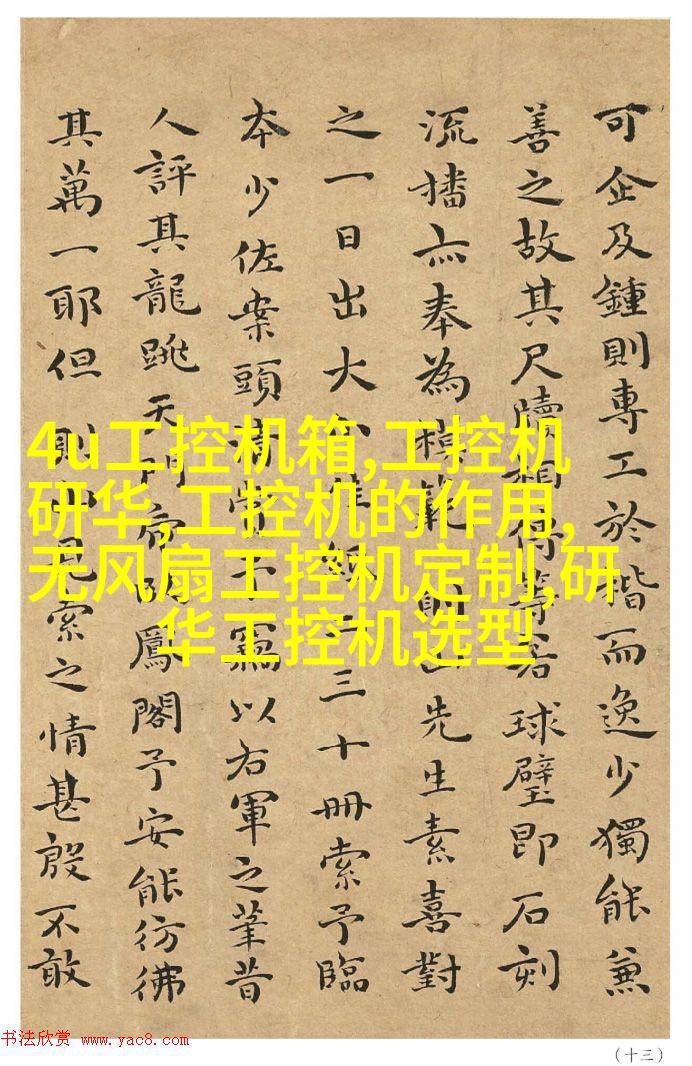 可企及鍾則專工於楷而逸少獨能兼
善之故其尺牘相等若球璧即石刻
流播亦奉為模範則山先生素喜對
之一日出大三十冊索予臨
本少佐案頭以右軍之筆昔
人評其龍跳天門鳳閣予安能彷彿
其萬一耶但則山見索之情甚殷不敢
4u工控机箱,工控机
研华,工控机的作用,
无风扇工控机定制,研
华工控机选型
书法欣赏 www.yac8.com
(十三)